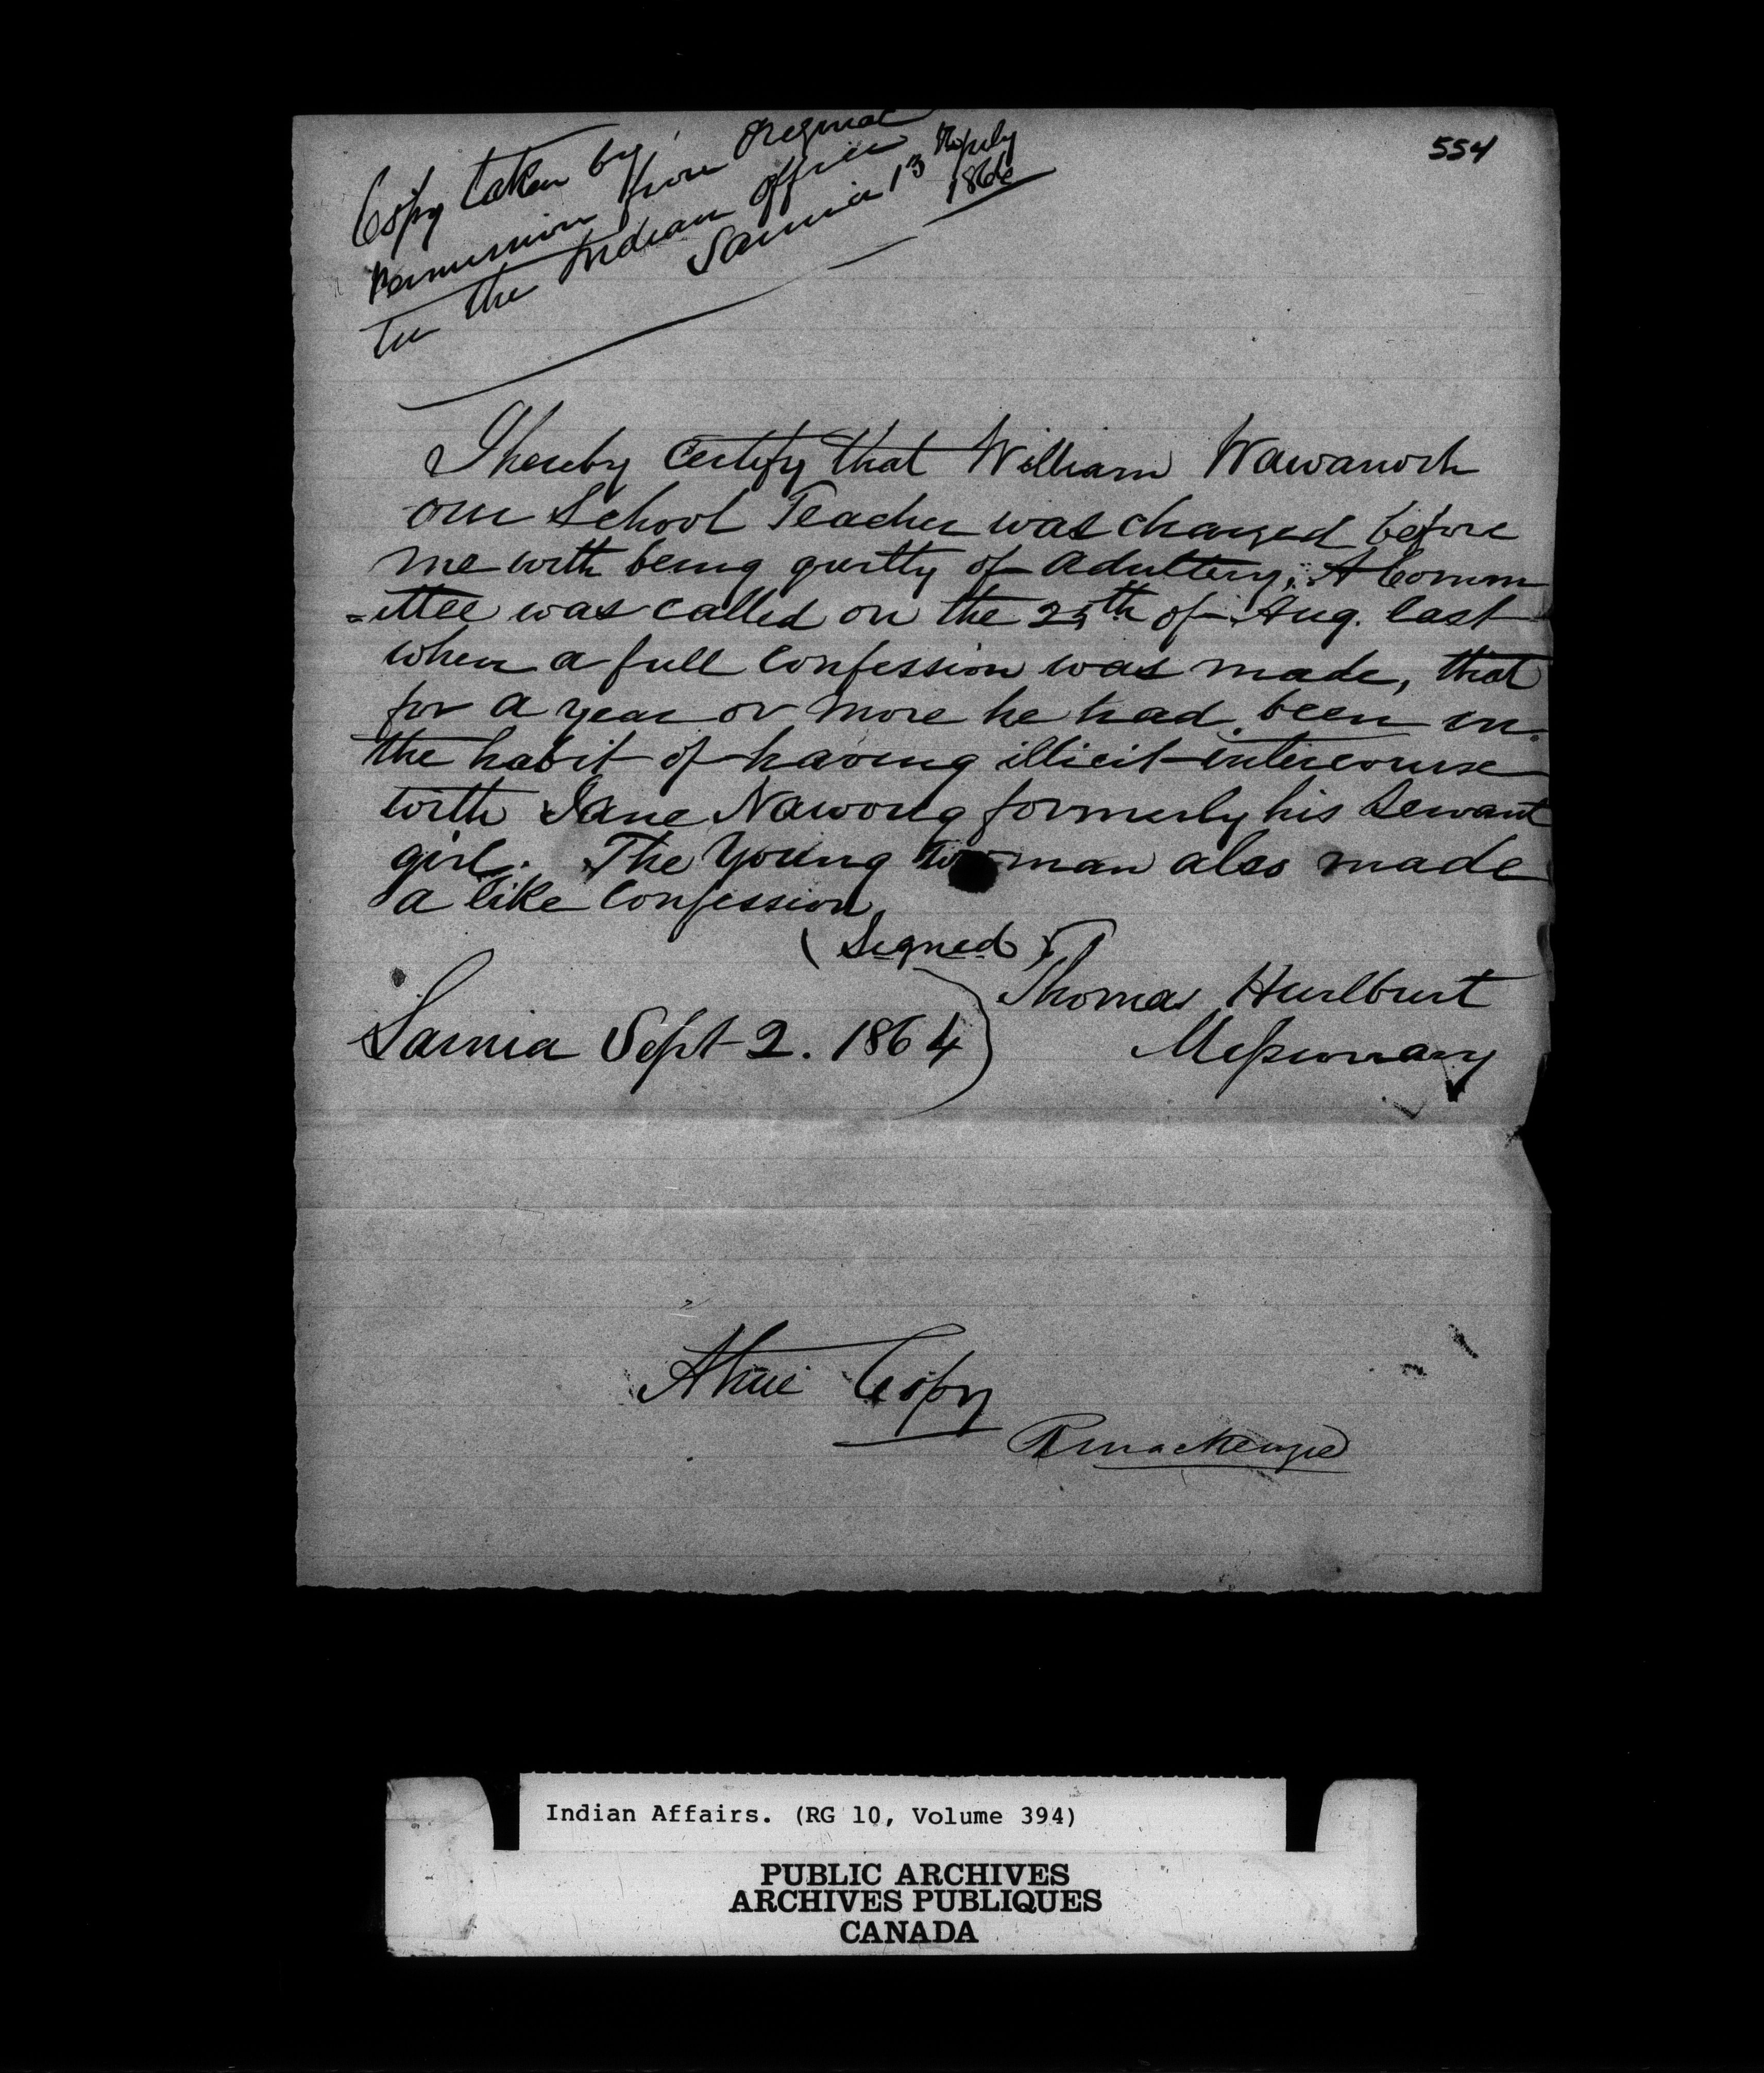 554
Copy taken by
permission from Original
in the Indian Office
Sarnia 13th July
186
I hereby Certify that William Wawanosh
our School Teacher was charged before
me with being guilty of adultery; A Comm
=ittee was called on the 25th of Aug. last
when a full Confession was made, that
for a year or more he had been in
the habit of having illicit intercourse
with Jane Nawong formerly his Servant
girl. The Young Woman also made
a like Confession
(Signed)
Thomas Hurlburt
Sarnia Sept 2. 1864
Missionary
A true Copy
R Mackenzie
Indian Affairs. (RG 10, Volume 394)
PUBLIC ARCHIVES
ARCHIVES PUBLIQUES
CANADA